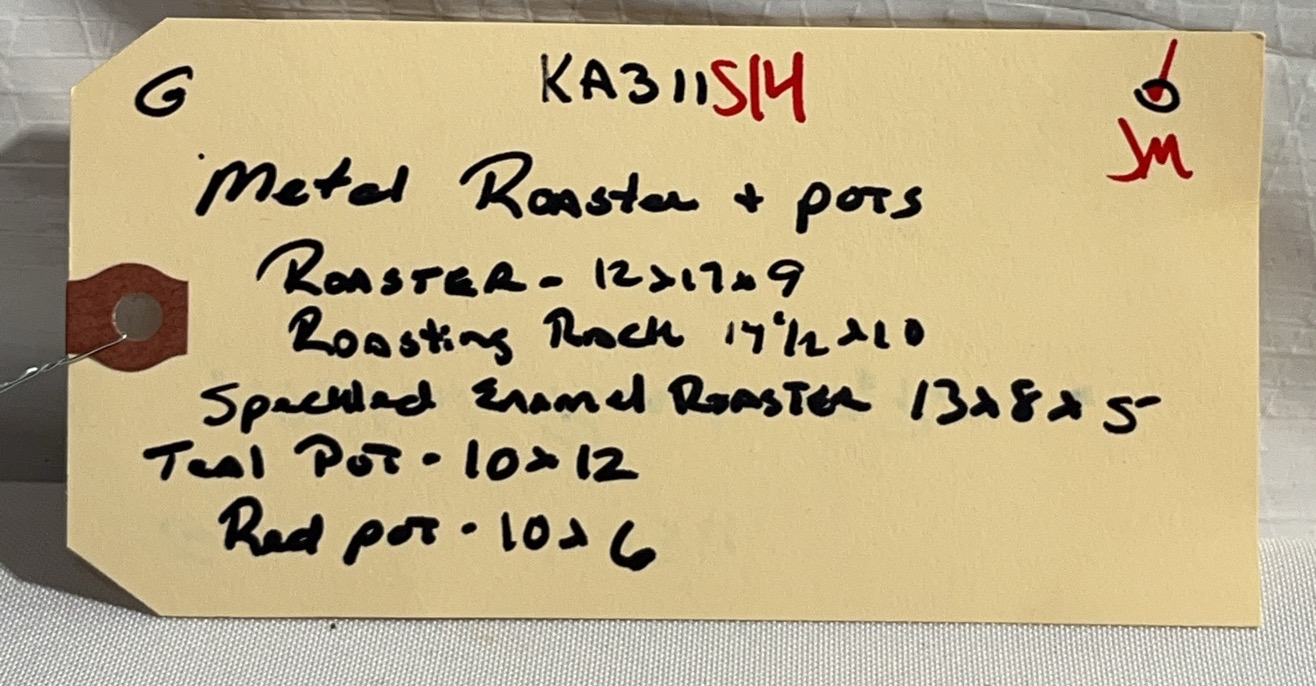 G KA311S14
JM
Metal Roaster + pots
ROASTER - 12x17x9
Roasting Rack 17 1/2 x 10
Speckled Enamel ROASTER 13x8x5
Teal POT - 10x12
Red pot - 10x6